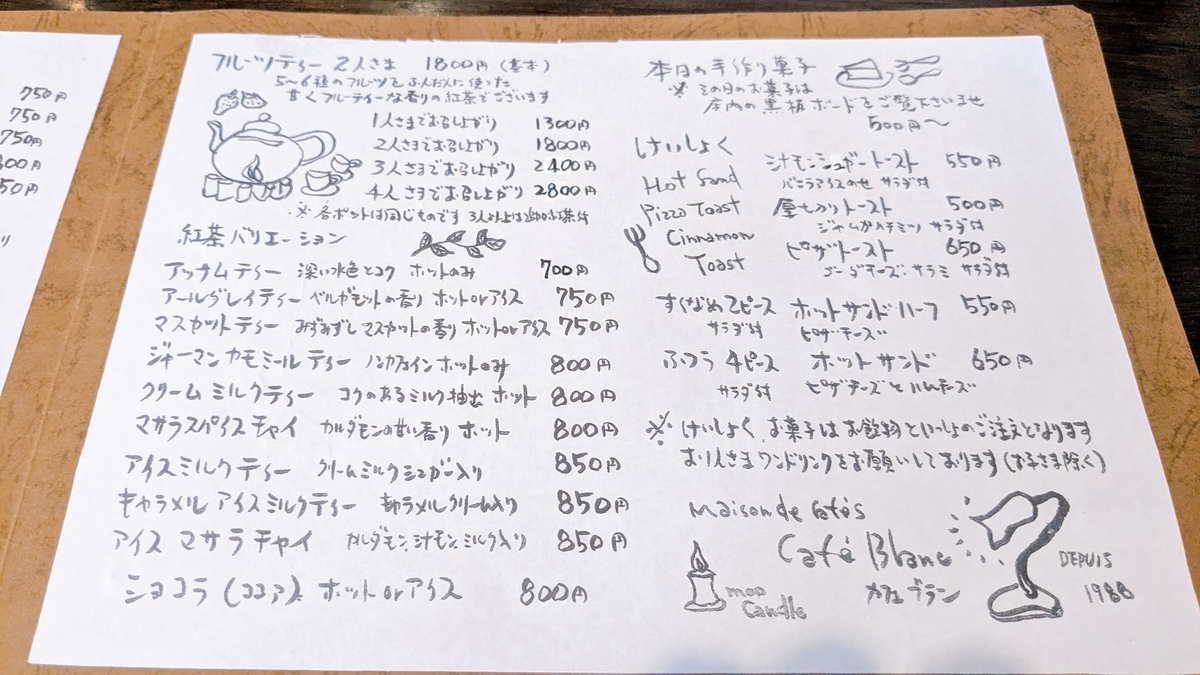 750円
750円
750円
800円
50円
フルーツティー 2人さま 1800円(基本)
5〜6種のフルーツをふんだんに使った
甘くフルーティーな香りの紅茶でございます
1人さまでおめしあがり 1300円
2人さまでおめしあがり 1800円
3人さまでおめしあがり 2400円
4人さまでおめしあがり 2800円
※各ポットは同じものです 3人以上は追加お茶付
紅茶バリエーション
アッサムティー 深い水色とコク ホットのみ 700円
アールグレイティー ベルガモットの香り ホットorアイス 750円
マスカットティー みずみずしマスカットの香り ホットorアイス 750円
ジャーマンカモミールティー ノンカフェイン ホットのみ 800円
クリームミルクティー コクのあるミルク抽出 ホット 800円
マサラスパイスチャイ カルダモンの甘い香り ホット 800円
アイスミルクティー クリームミルクシュガー入り 850円
キャラメルアイスミルクティー キャラメルクリーム入り 850円
アイスマサラチャイ カルダモン,シナモン,ミルク入り 850円
ショコラ(ココア) ホットorアイス 800円
本日の手作り菓子
※その日のお菓子は
店内の黒板ボードをご覧下さいませ
500円〜
けいしょく
Hot Sand
Pizza Toast
Cinnamon
Toast
シナモンシュガートースト 550円
バニラアイスのせ サラダ付
厚切りトースト 500円
ジャムかハチミツ サラダ付
ピザトースト 650円
ゴーダチーズ・サラミ サラダ付
すくなめ2ピース ホットサンドハーフ 550円
サラダ付 ピザチーズ
ふつう 4ピース ホットサンド 650円
サラダ付 ピザチーズとハムチーズ
※けいしょく、お菓子はお飲物といっしょのご注文となります
お1人さまワンドリンクをお願いしております(お子さま除く)
Maison de Cafés
Café Blanc
カフェブラン
DEPUIS
1988
moo
Candle